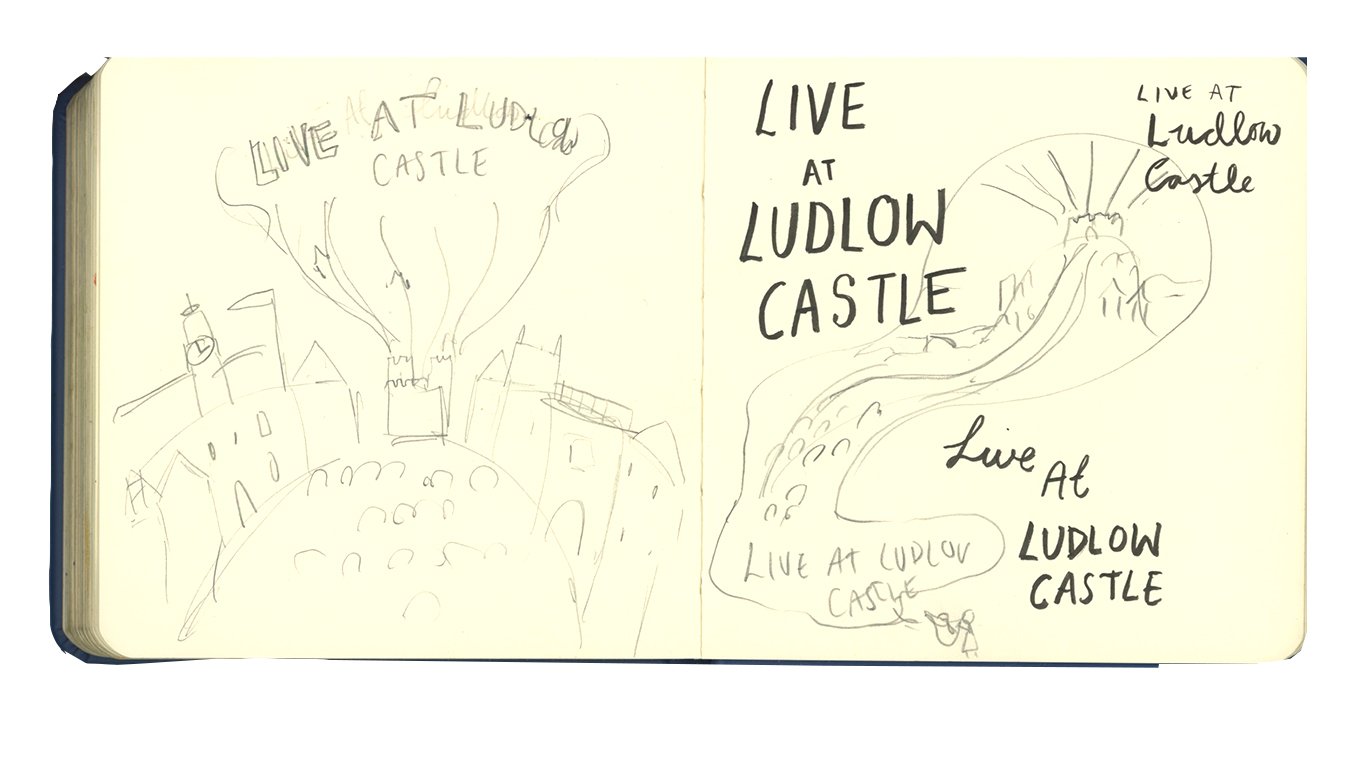 LIVE AT LUDLOW
CASTLE
LIVE
AT
LUDLOW
CASTLE
LIVE AT
Ludlow
Castle
Live
At
LUDLOW
CASTLE
LIVE AT LUDLOW
CASTLE